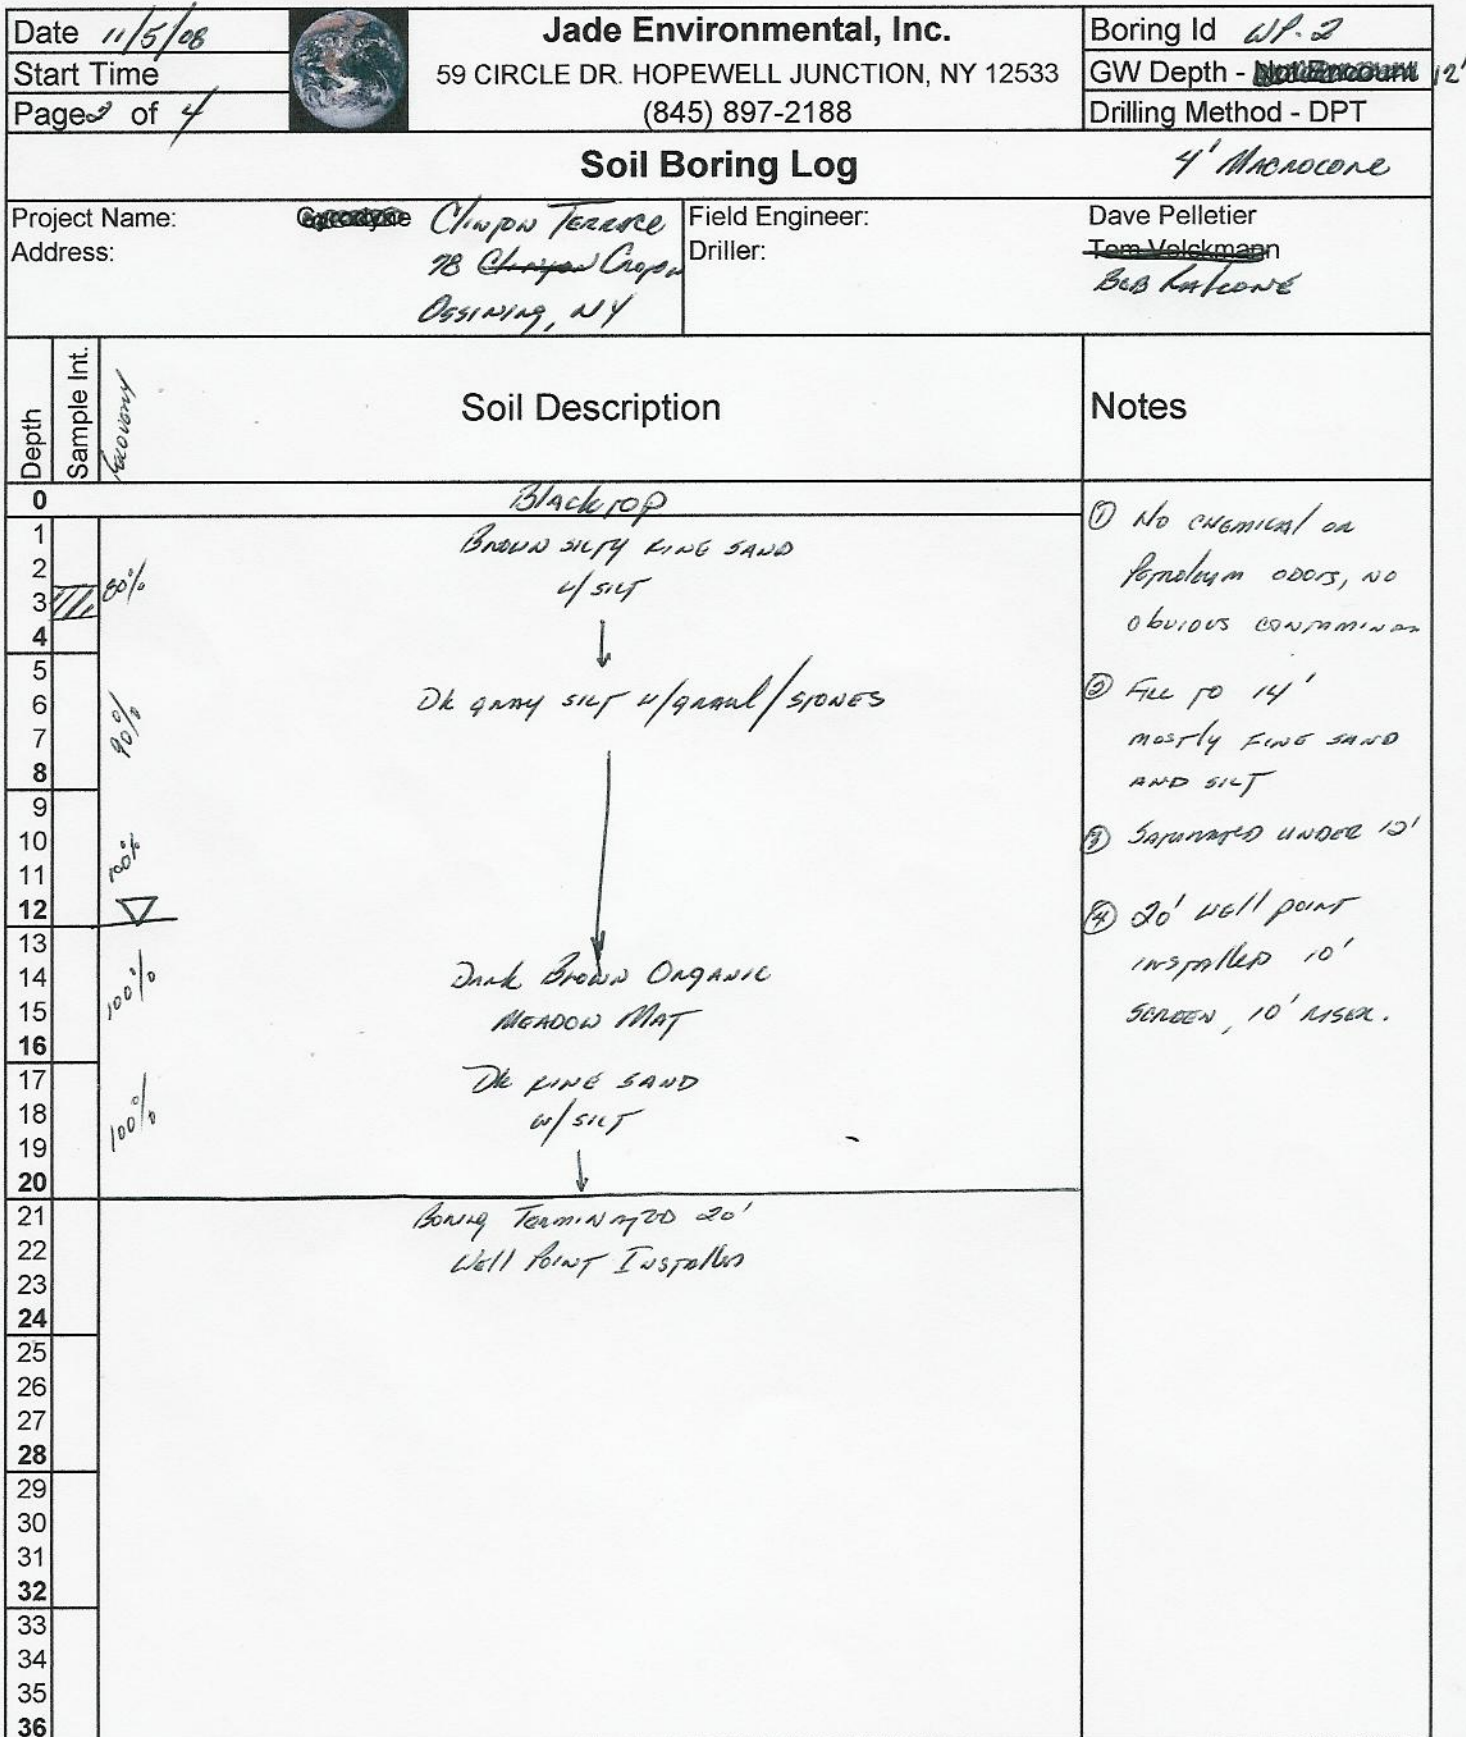 Date 11/5/08
Start Time
Page 2 of 4
Jade Environmental, Inc.
59 CIRCLE DR. HOPEWELL JUNCTION, NY 12533
(845) 897-2188
Boring Id WP-2
GW Depth - Not Encount 12'
Drilling Method - DPT
Soil Boring Log
4' MACROCORE
Project Name: Clinton Terrace
Address: 78 Clinton Croton
Ossining, NY
Field Engineer: Dave Pelletier
Driller: Tom Volckmann
BOB
Depth
Sample Int.
Recovery
Soil Description
Notes
0
Blacktop
1
2
3
4
5
6
7
8
9
10
11
12
13
14
15
16
17
18
19
20
21
22
23
24
25
26
27
28
29
30
31
32
33
34
35
36
80%
90%
100%
100%
100%
BROWN SILTY FINE SAND
w/ SILT
DK GRAY SILT w/gravel/STONES
Dark Brown Organic
MEADOW MAT
DK FINE SAND
w/ SILT
Boring Terminated 20'
Well Point Installed
① No CHEMICAL or
Petroleum ODORS, NO
obvious
② FILL TO 14'
mostly FINE SAND
AND SILT
③ SATURATED UNDER 12'
④ 20' well point
installed 10'
SCREEN, 10' RISER.